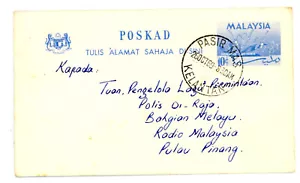 POSKAD
MALAYSIA
TULIS ALAMAT SAHAJA DI-SINI
10c
PASIR MAS
KELANTAN
Kapada:
Tuan Pengelola Lagu2 Permintaan
Polis Di-Raja,
Bahgian Melayu,
Radio Malaysia
Pulau Pinang.